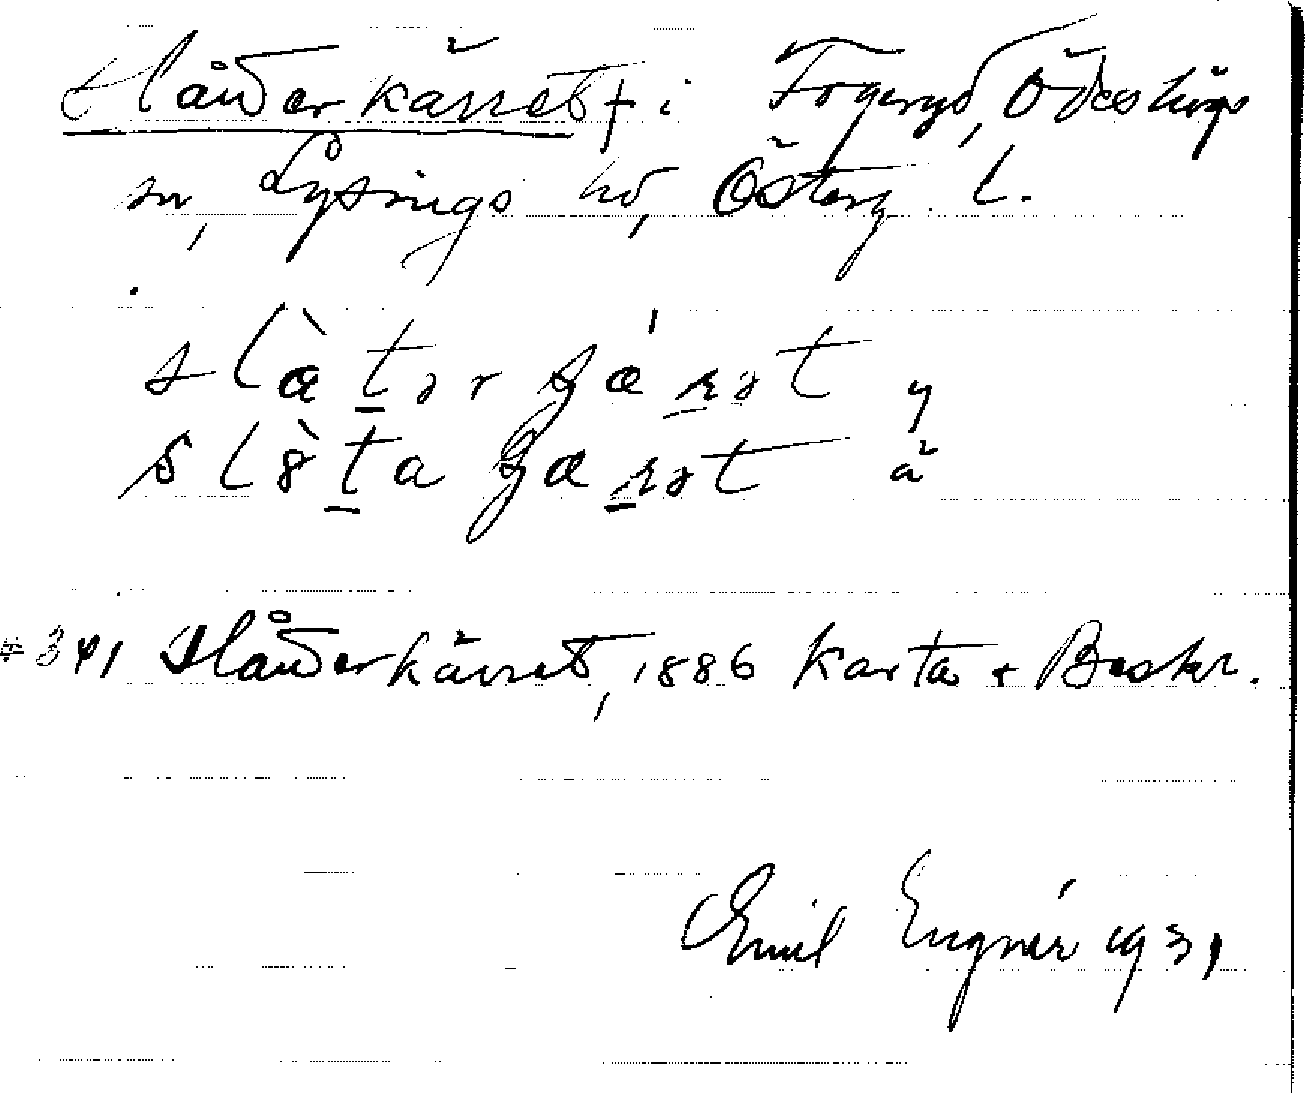 Slåtterkärret + i Fogeryd, Ödeshögs
sn, Lysings hd, Österg. L.
slæ̀tər ȥæˈrət y
slèta ȥærət ä
# 341 Slåtterkärret, 1886 Karta + Beskr.
Emil Engnér 1931